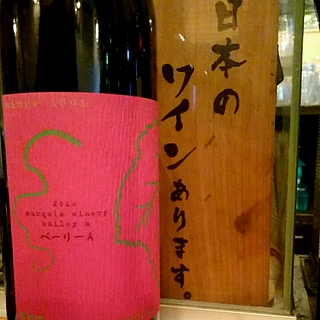 since 1891
marquis winery
bailey a
ベーリーA
日本の
ワインあります。